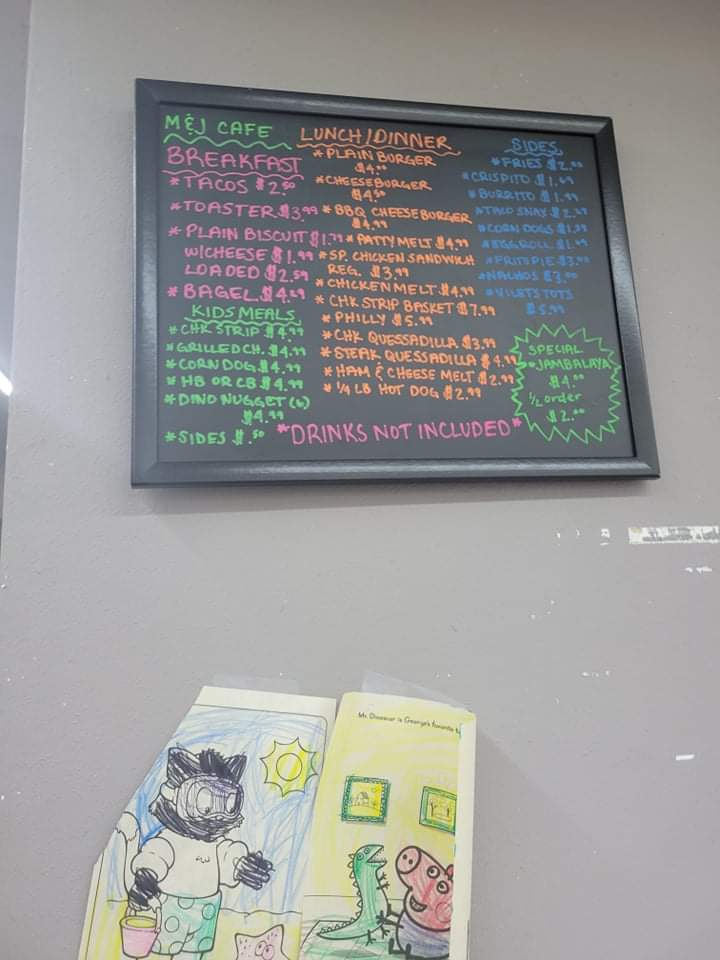 M&J CAFE
BREAKFAST
*TACOS $2.50
*TOASTER $3.99
*PLAIN BISCUIT $1.79
W/CHEESE $1.99
LOADED $2.59
*BAGEL $4.69
KIDS MEALS
*CHK STRIP $4.99
*GRILLED CH. $4.99
*CORN DOG $4.99
*HB OR CB $4.99
*DINO NUGGET (6)
$4.99
*SIDES $.50
LUNCH/DINNER
*PLAIN BURGER
$4.00
*CHEESEBURGER
$4.50
*BBQ CHEESEBURGER
$4.99
*PATTY MELT $4.99
*SP. CHICKEN SANDWICH
REG. $3.99
*CHICKEN MELT $4.99
*CHK STRIP BASKET $7.99
*PHILLY $5.99
*CHK QUESSADILLA $3.99
*STEAK QUESSADILLA $4.99
*HAM & CHEESE MELT $2.99
*1/4 LB HOT DOG $2.99
*DRINKS NOT INCLUDED*
SIDES
*FRIES $2.00
*CRISPITO $1.69
*BURRITO $1.99
*TACO SNAX
*CORN DOGS
*EGGROLL $1.99
*FRITO PIE $3.00
*NACHOS $3.00
TOTS
$5.99
SPECIAL
*JAMBALAYA
$4.00
1/2 order
$2.00
Mr. Dinosaur is George's favorite